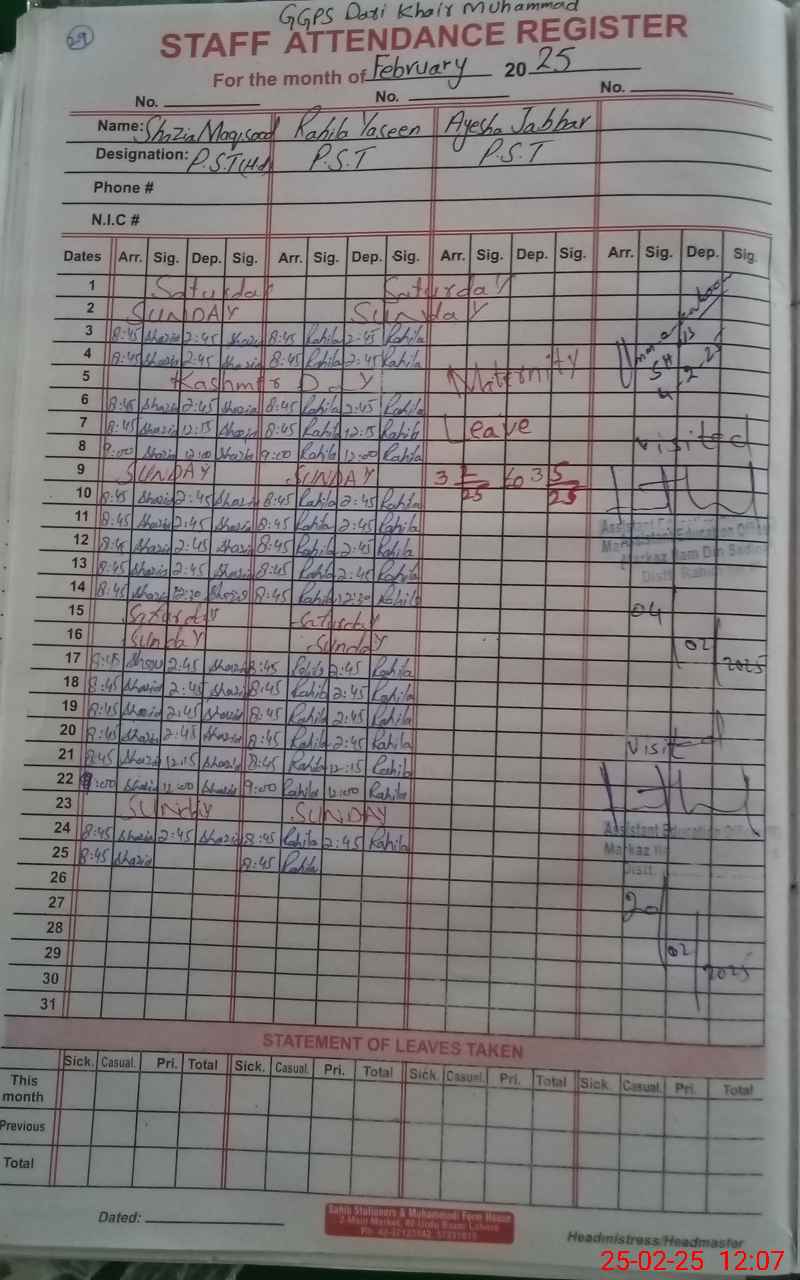 29
GGPS Dari Khair Muhammad
STAFF ATTENDANCE REGISTER
For the month of February 2025
No. No. No.
Name: Shazia Maqsood Rahila Yaseen Ayesha Jabbar
Designation: P.S.T(Hd) P.S.T P.S.T
Phone #
N.I.C #
Dates Arr. Sig. Dep. Sig. Arr. Sig. Dep. Sig. Arr. Sig. Dep. Sig. Arr. Sig. Dep. Sig.
1 Saturday Saturday
2 SUNDAY Sunday
3 8:45 Shazia 2:45 Shazia 8:45 Rahila 2:45 Rahila
4 8:45 Shazia 2:45 Shazia 8:45 Rahila 2:45 Rahila
5 Kashmir Day Maternity
6 8:45 Shazia 2:45 Shazia 8:45 Rahila 2:45 Rahila
7 8:45 Shazia 12:15 Shazia 8:45 Rahila 12:15 Rahila Leave
8 9:00 Shazia 12:00 Shazia 9:00 Rahila 12:00 Rahila visited
9 SUNDAY SUNDAY 3 2/25 to 3 5/25
10 8:45 Shazia 2:45 Shazia 8:45 Rahila 2:45 Rahila
11 8:45 Shazia 2:45 Shazia 8:45 Rahila 2:45 Rahila
12 8:45 Shazia 2:45 Shazia 8:45 Rahila 2:45 Rahila
13 8:45 Shazia 2:45 Shazia 8:45 Rahila 2:45 Rahila
14 8:45 Shazia 12:30 Shazia 8:45 Rahila 12:30 Rahila
15 Saturday Saturday 04
16 Sunday Sunday 02
17 8:45 Shazia 2:45 Shazia 8:45 Rahila 2:45 Rahila 2025
18 8:45 Shazia 2:45 Shazia 8:45 Rahila 2:45 Rahila
19 8:45 Shazia 2:45 Shazia 8:45 Rahila 2:45 Rahila
20 8:45 Shazia 2:45 Shazia 8:45 Rahila 2:45 Rahila
21 8:45 Shazia 12:15 Shazia 8:45 Rahila 12:15 Rahila
22 9:00 Shazia 12:00 Shazia 9:00 Rahila 12:00 Rahila
23 SUNDAY SUNDAY
24 8:45 Shazia 2:45 Shazia 8:45 Rahila 2:45 Rahila Assistant Education
25 8:45 Shazia 8:45 Rahila Markaz
26
27 20
28
29 02
30 2025
31
STATEMENT OF LEAVES TAKEN
Sick. Casual. Pri. Total Sick. Casual. Pri. Total Sick. Casual. Pri. Total Sick. Casual. Pri. Total
This month
Previous
Total
Dated:
Sahib Stationers & Muhammadi Form House
2-Main Market, 40-Urdu Bazar Lahore
Headmistress/Headmaster
25-02-25 12:07